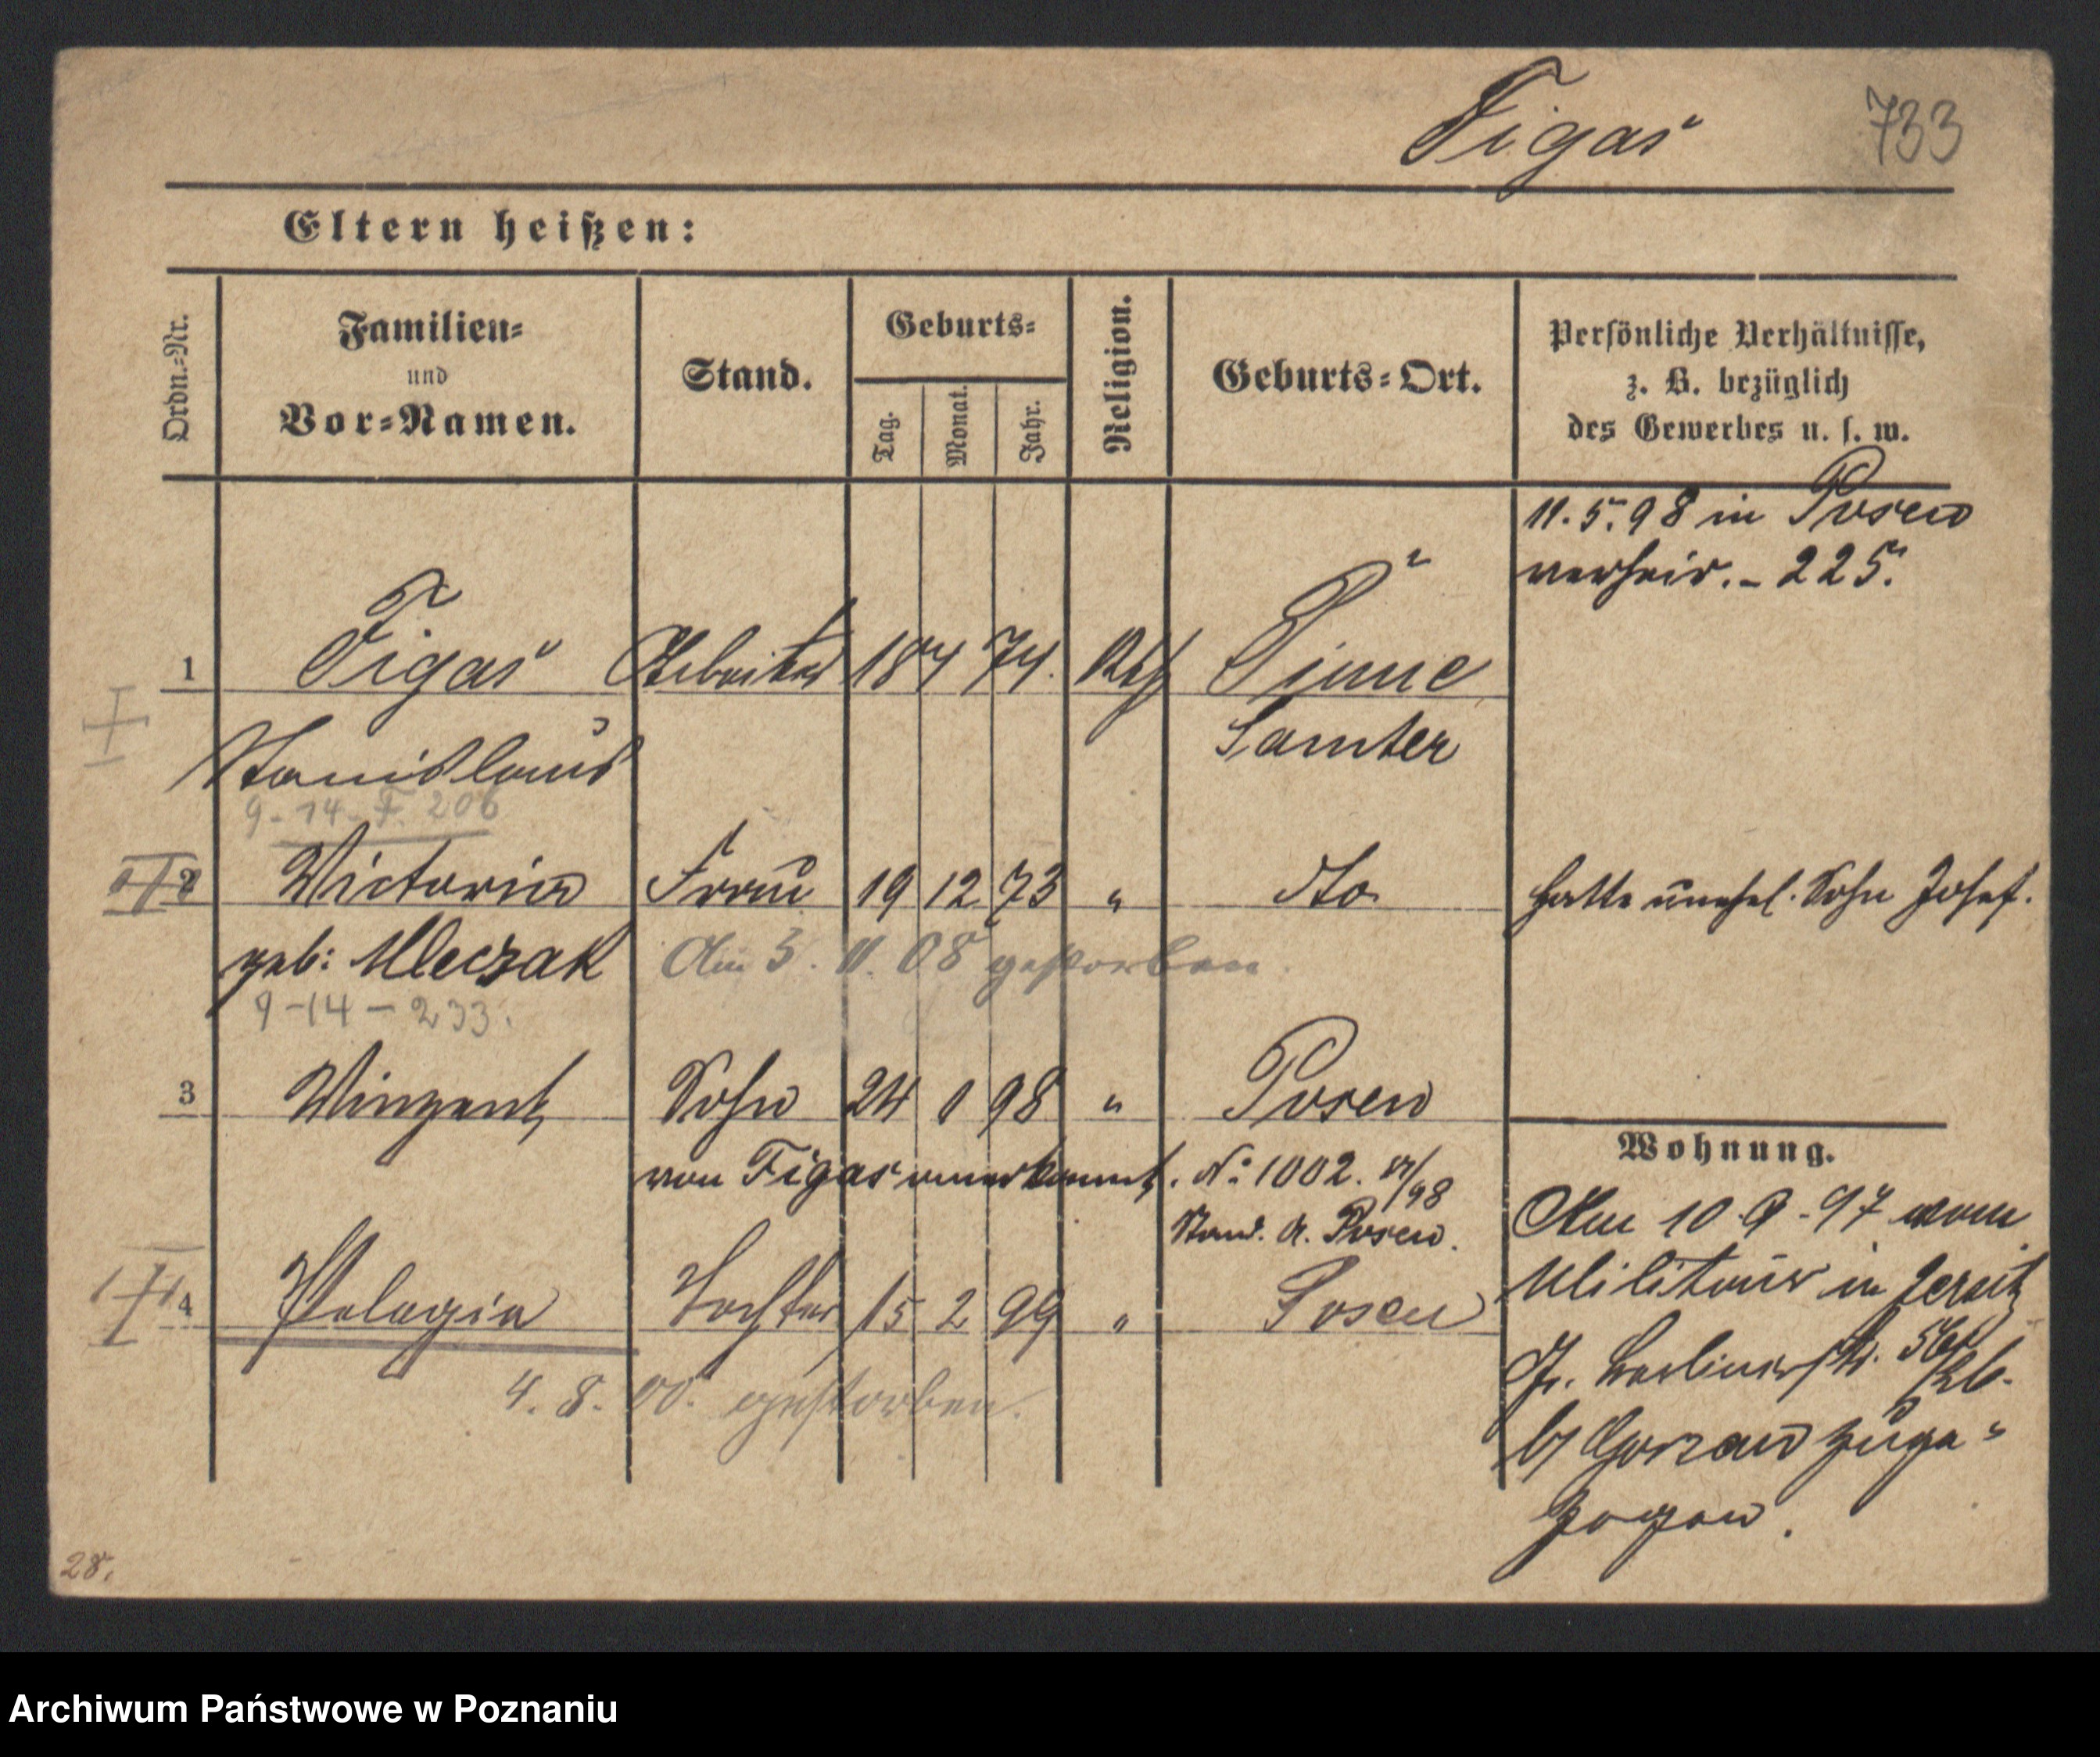 Figas
733
Eltern heißen:
Ordn.-Nr.
Familien-
und
Vor-Namen.
Stand.
Geburts-
Tag.
Monat.
Jahr.
Religion.
Geburts-Ort.
Persönliche Verhältnisse,
z. B. bezüglich
des Gewerbes u. s. w.
11.5.98 in Posen
verheir. - 225.
1 Figas Arbeiter 18 4 74. Kath Pinne
Stanislaus Samter
9-14-F. 206
2 Victoria Frau 19 12 73 " dto. hatte unehel. Sohn Josef.
geb: Mleczak Am 3. 11. 08 gestorben.
9-14-233.
3 Vinzent Sohn 24 1 98 " Posen
von Figas anerkannt. No: 1002.
Stand. A. Posen.
4 Pelagia Tochter 15 2 99 " Posen
4. 8. 00. gestorben.
Wohnung.
Am 10.9.97 vom
Militair in Jersitz
Gr. Berlinerstr.
b/ Gorzan zuge-
zogen.
28.
Archiwum Państwowe w Poznaniu